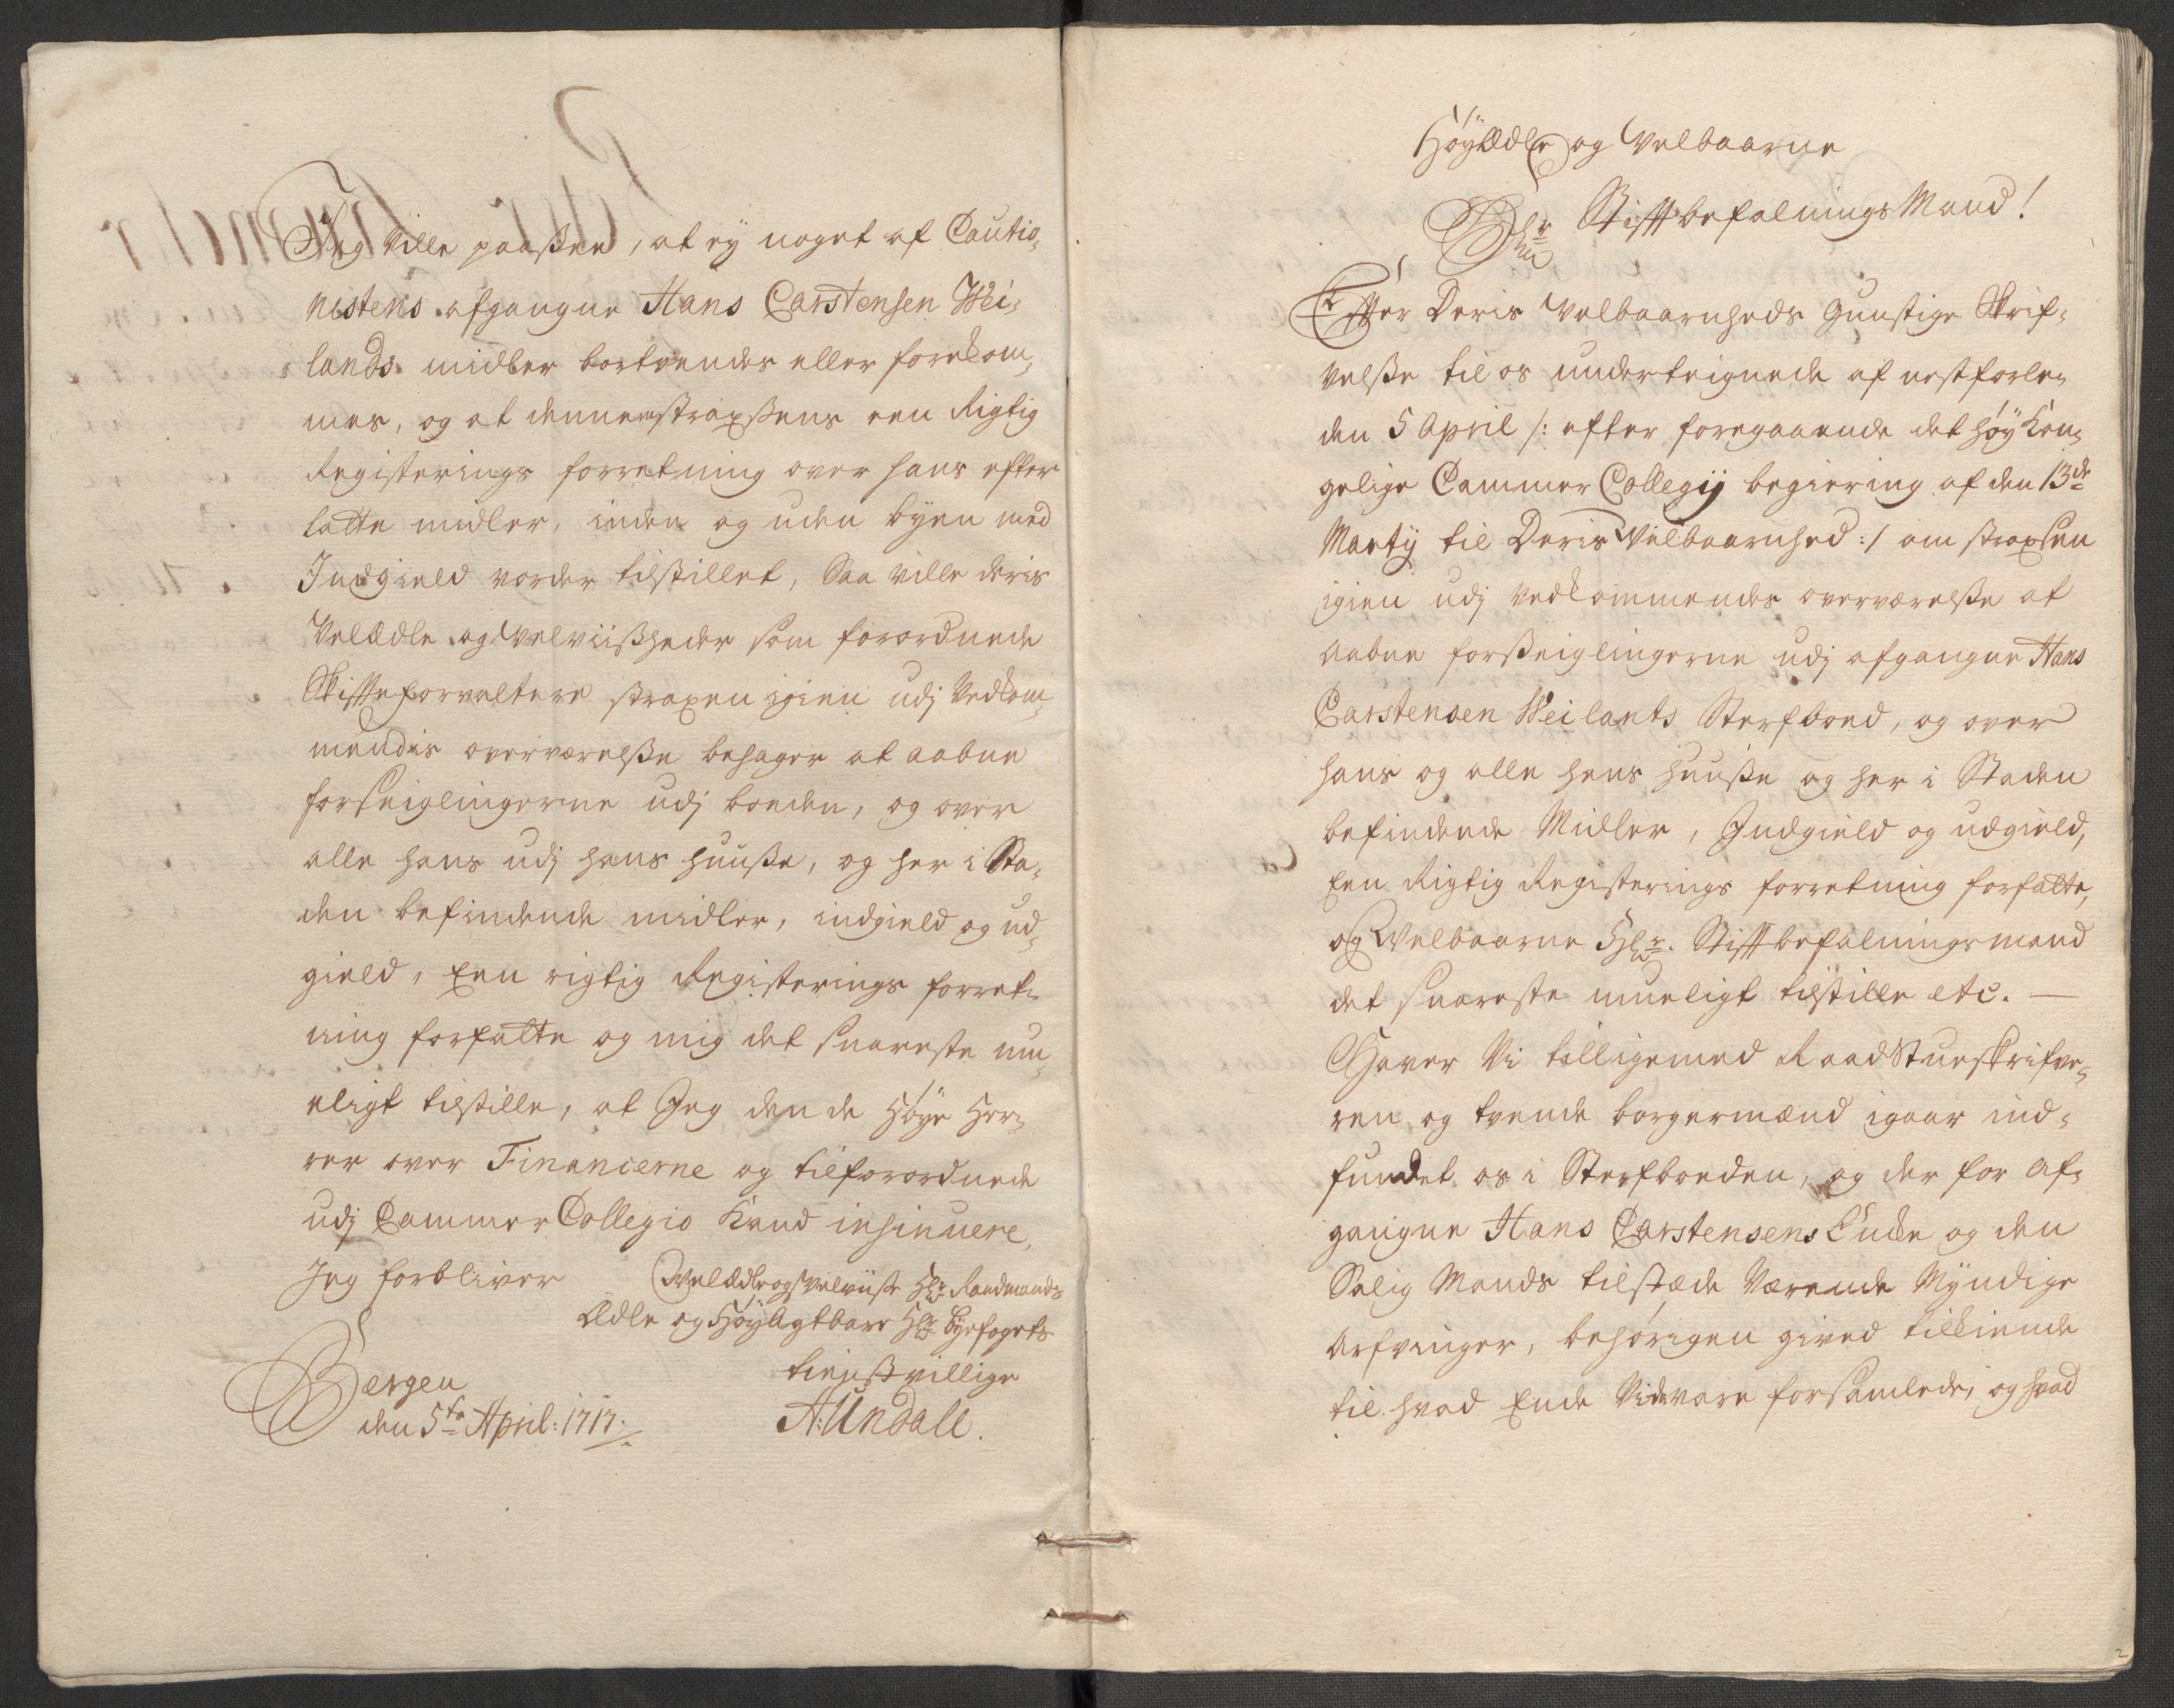 Jeg ville paaßee, at ey noget af Cautio-
nistens afgangne Hans Carstensen Wei-
lands midler bortvendes eller forekom-
mes, og at denne straxßens een Rigtig
Registerings forretning over hans efter
latte midler, inden og uden byen med
Indgield vorder tilstillet, Saa ville deris
Velædle og Velviißheder som forordnede
Skiffteforvaltere straxen igien udj Vedkom-
mendis overværelße behager at aabne
forseiglingerne udj boeden, og over
alle hans udj hans huuße, og her i Sta-
den befindende midler, indgield og ud-
gield, Een rigtig Registerings forret-
ning forfatte og mig det snareste mu-
eligt tilstille, at Jeg den de Høye Her-
rer over Financerne og tilforordnede
udj Cammer Collegio Kand insinuere,
Jeg forbliver
Velædle og Velviiste Hr Raadmands
Ædle og HøyAgtbare Hr Byefogets
Bergen
den 5te April: 1717.
tienstvillige
A: Undall.
HøyÆdle og Velbaarne
Hr Stifftbefalnings Mand!
Effter Deris Velbaarnheds Gunstige Skrif-
velße til os underteignede af nestforle-
den 5 April /: efter foregaaende det høy Kon-
gelige Cammer Collegij begiering af den 13de
Martij til Deris Velbaarnhed :/ om straxsen
igien udj vedkommendes overværelße at
aabne forßeiglingerne udj afgangne Hans
Carstensen Weilants Sterfboed, og over
hans og alle hans huuße og her i Staden
befindende Midler, Indgield og udgield,
Een Rigtig Registerings forretning forfatte,
og Velbaarne Hr. Stifftbefalningsmand
det snareste mueligt tilstille etc. —
Haver Vi tilligemed Raadstueskrifve-
ren og tvende borgermænd igaar ind-
fundet os i Sterfboeden, og der for af-
gangne Hans Carstensens Encke og den
Salig Mands tilstæde Værende Myndige
Arfvinger, behørigen gived tilkiende
til hvad Ende Vi der vare forsamlede, og hvad